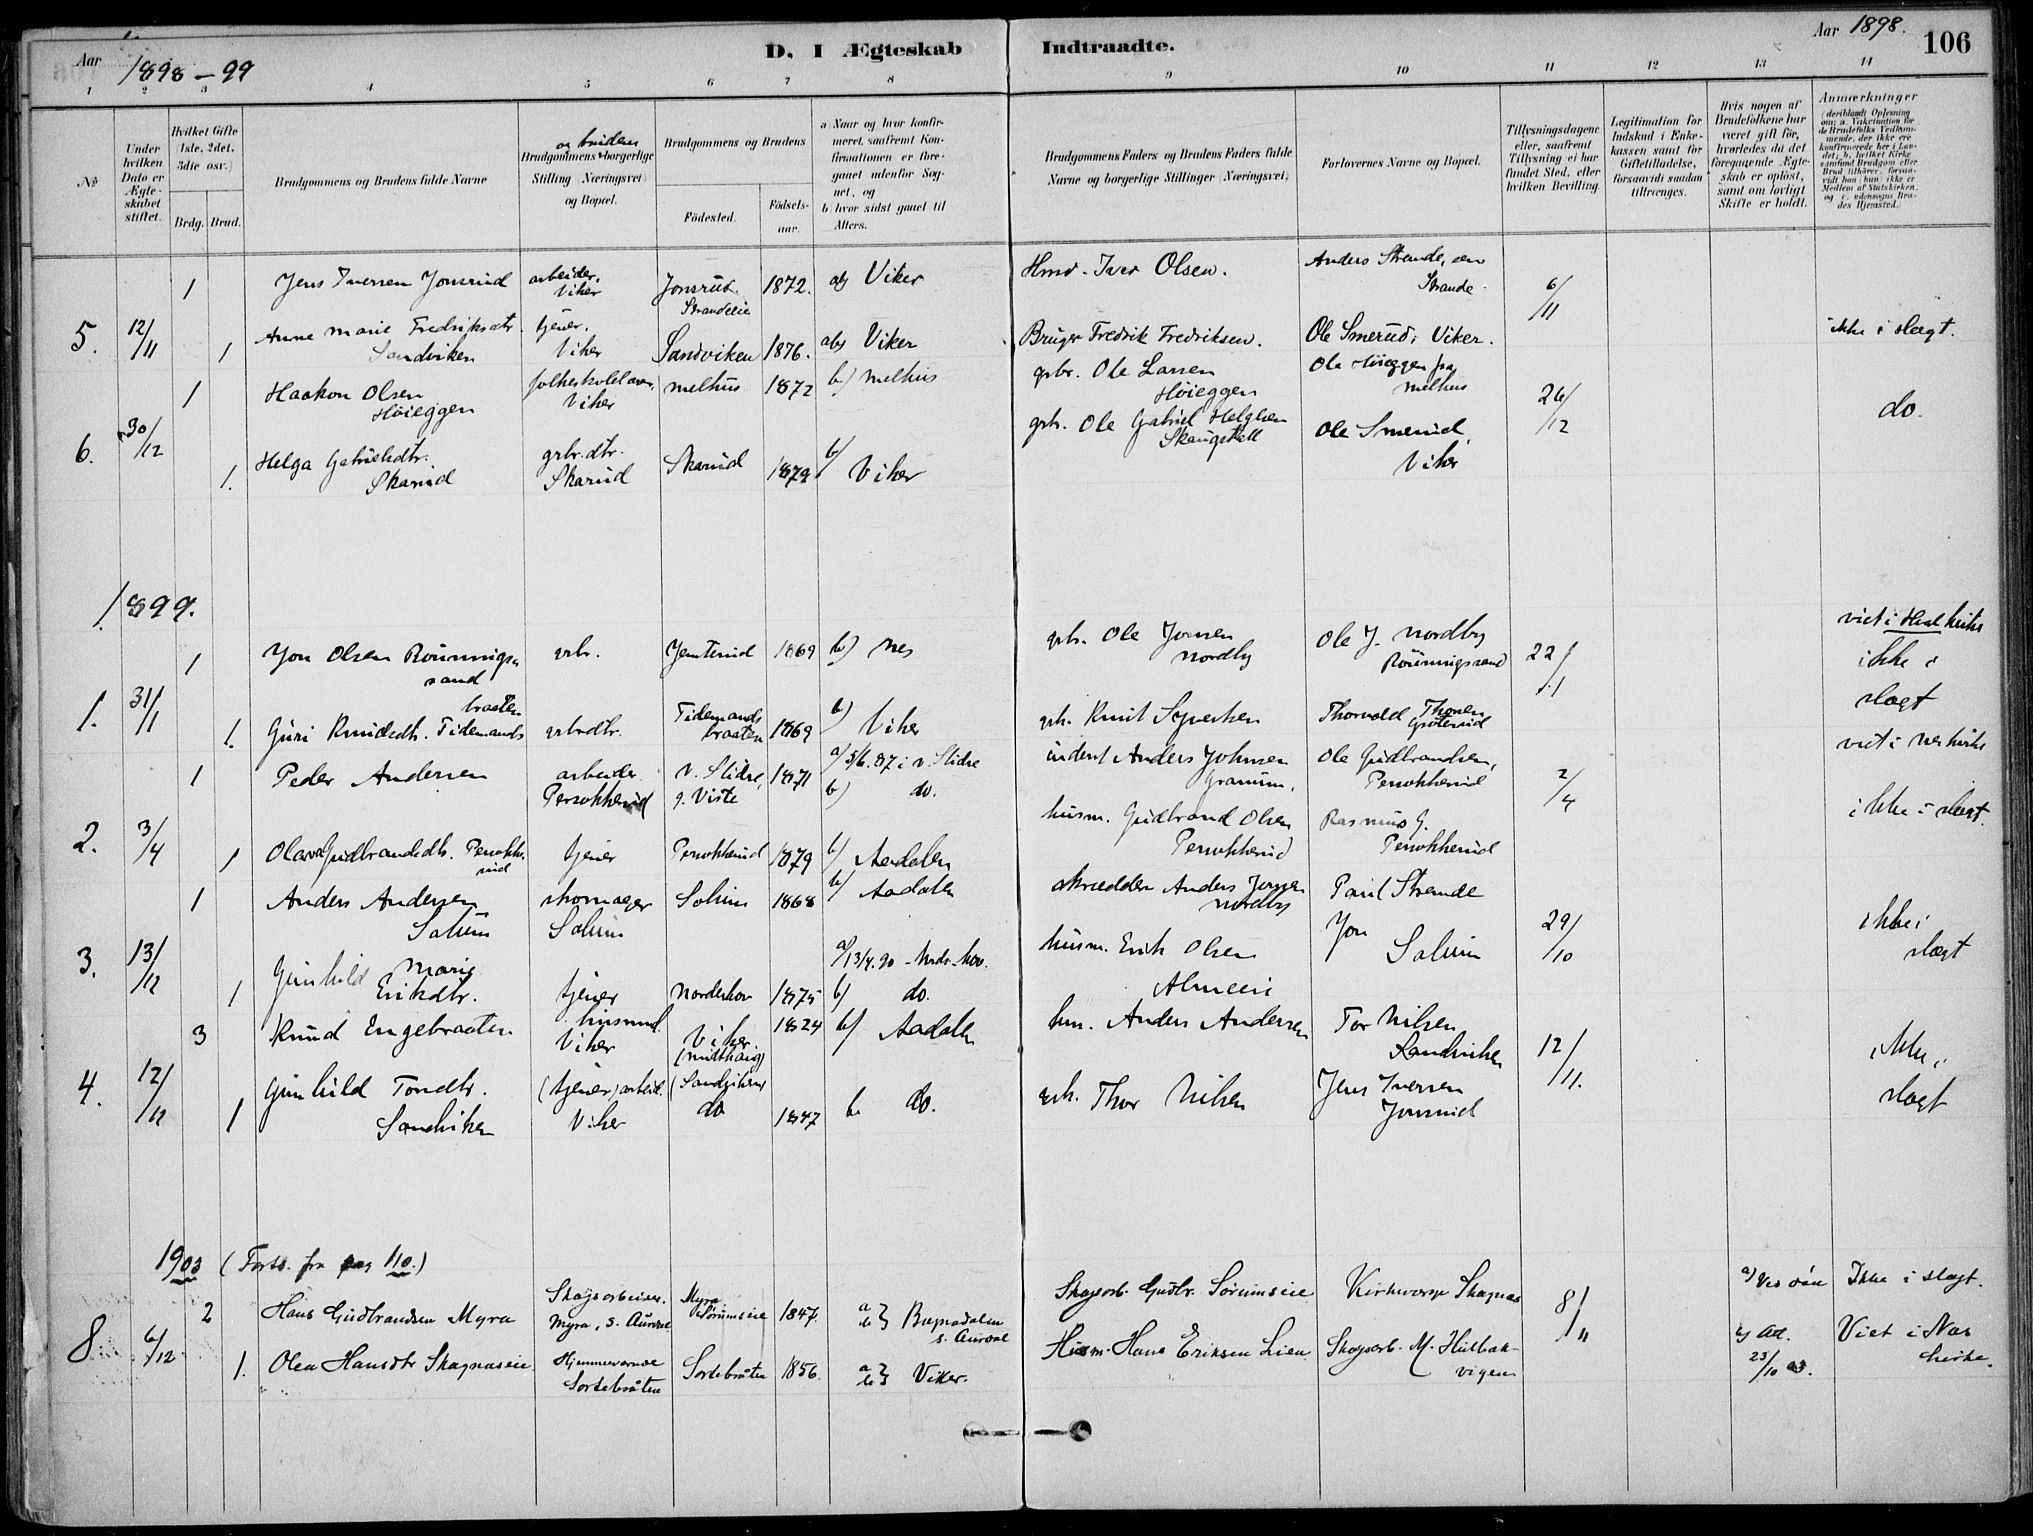 Aar 1898–99
D. I Ægteskab Indtraadte.
Aar 1898.
106
1 2 3 4 5 6 7 8 9 10 11 12 13 14
No
Under hvilken Dato er Ægteskabet stiftet.
Hvilket Gifte (1ste, 2det, 3die osv.)
Brdg. Brud.
Brudgommens og Brudens fulde Navne
og brudens
Brudgommens borgerlige Stilling (Næringsvei) og Bopæl.
Brudgommens og Brudens
Födested.
Födsels-aar.
a) Naar og hvor konfirmeret, saafremt Konfirmationen er foregaaet udenfor Sognet, og
b) hvor sidst gaaet til Alters.
Brudgommens Faders og Brudens Faders fulde Navne og borgerlige Stillinger (Næringsvei)
Forlovernes Navne og Bopæl.
Tillysningsdagene eller, saafremt Tillysning ei har fundet Sted, efter hvilken Bevilling.
Legitimation for Indskud i Enkekassen samt for Giftetilladelse, forsaavidt saadan tiltrænges.
Hvis nogen af Brudefolkene har været gift för, hvorledes da det foregaaende Ægteskab er oplöst, samt om lovligt Skifte er holdt.
Anmærkninger (deriblandt Oplysning om: a. Vakcination for de Brudefolks Vedkommende, der ikke ere konfirmerede her i Landet; b. hvilket Kirkesamfund Brudgom eller Brud tilhører, forsaavidt han (hun) ikke er Medlem af Statskirken, og c. udensogns Brudes Hjemsted.)
1 Jens Iversen Jonsrud arbeider. Viker Jonsrud Strandeie 1872. ab) Viker Hmd. Iver Olsen. Anders Strande, Strande 6/11
5. 12/11 1 Anne Marie Fredriksdtr. Sandviken tjener. Viker Sandviken 1876. ab) Viker Bruger Fredrik Fredriksen. Ole Smerud, Viker. ikke i slægt.
1 Haakon Olsen Höieggen Viker Melhus 1872 b) Melhus gbr. Ole Larsen Höieggen Ole Höieggen fra Melhus 26/12 do.
6. 30/12 1. Helga Gabrielsdtr. Skarud grbr. dtr. Skarud Skarud 1879 b) Viker grb. Ole Gabriel Helgesen Ole Smerud, Viker
1899.
1 Jon Olsen Rönningsand grbr. Jemterud 1869 b) Nes grb. Ole Jonsen Nordby Ole J. Nordby Rönningsand 22/1 viet i Hval kirke ikke i slægt
1. 31/1 1. Guri Knudsdtr. Tidemandsbraaten grbrdtr. Tidemandsbraaten 1869 b) Viker grb. Knut Syversen Thorvald Thoresen
1 Peder Andersen arbeider. Persokkerud V. Slidre, g. Viste 1871 a) 5/6.87 i v. Slidre b) do. inderst Anders Johnsen Granum. Ole Gudbrandsen, Persokkerud 2/4 viet i Nes kirke ikke i slægt.
2. 3/4 1 Olava Gudbrandsdtr. Persokkerud tjener Persokkerud 1879 b) Aadalen husm. Gudbrand Olsen Persokkerud Rasmus G. Persokkerud
1 Anders Andersen Solum skomager Solum Solum 1868 b) Aadalen skrædder Anders Jensen Nordby Paul Strande 29/10 ikke i slægt
3. 13/12 1 Gunhild Marie Eriksdtr. tjener Norderhov 1875 a) 13/4.90 Nrds.hov. b) do. husm. Erik Olsen Almeeie Jon Solum
3 Knud Engebraaten husmd. Viker Viker (midthaug) 1824 b) Aadalen hm. Anders Andersen Tor Nilsen Sandviken 12/11. ikke i slægt
4. 12/12 1 Gunhild Torsdtr. Sandviken (tjener) arbeid. Viker (Sandviken) do 1847 b. do. grb. Thor Nilsen Jens Iversen Jonsrud
1903 (Forts. fra pag 110.)
2 Hans Gudbrandsen Myra Skogsarbeider. Myra, S. Aurdal Myra Sørumseie 1847. a b} Begnadalen S. Aurdal Skogsarb. Gudbr. Sørumseie Kirkeverge Skagnæs 8/11 a) Ved død Ikke i slægt.
8. 6/12 1. Olea Hansdtr Skagnæseie Hjemmeværende Sortebråten Sortebråten 1856. a b} Viker. Husm. Hans Eriksen Lien Skogsarb. M. Hulbakvigen b) Ad. 23/10 03. Viet i Nes kirke.